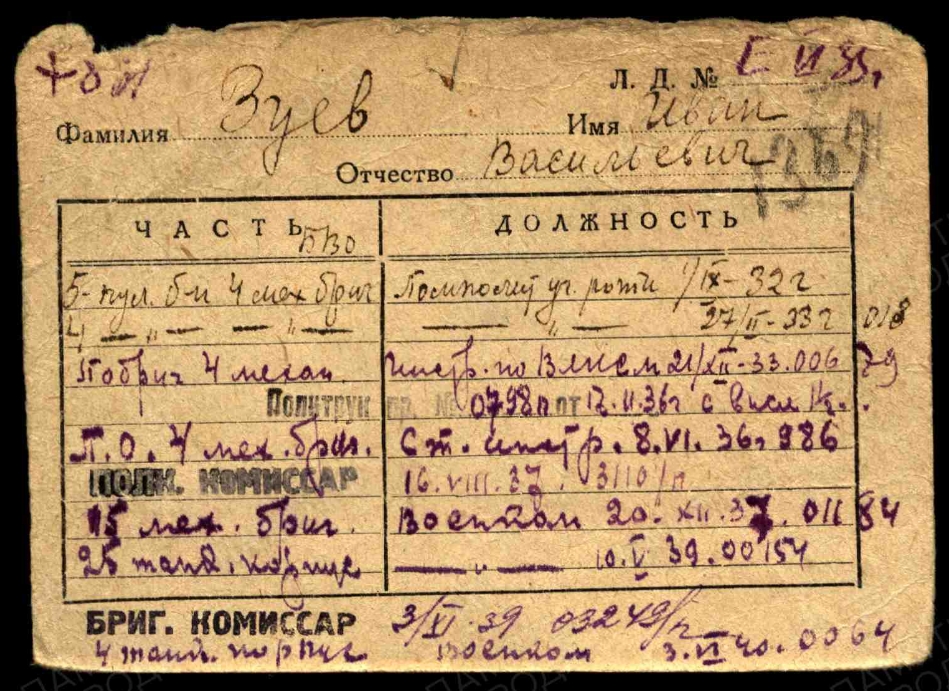 Л. Д. № 
Фамилия Зуев Имя Иван
Отчество Васильевич
1369
ЧАСТЬ ДОЛЖНОСТЬ
БВО
5-пул. б-н 4 мех бриг Помполит уч. роты 1/IX-32г
4 — „ — — „ — — „ — 27/II-33г 018
Побриг 4 механ. Инстр. по ВЛКСМ 21/XII-33.006 79
Политрук пр. № 0798п от 17.II.36г с
П. О. 4 мех. бриг. Ст. инстр. 8.VI.36г 986
ПОЛК. КОМИССАР 16.VIII.37. 3110/п
15 мех. бриг. Военком 20.XII.37. 011 84
25 танк. корпус — „ — 10.V 39.00154
БРИГ. КОМИССАР 3/XI-39 03249/п
4 танк. корпус военком 3.VI 40.0064